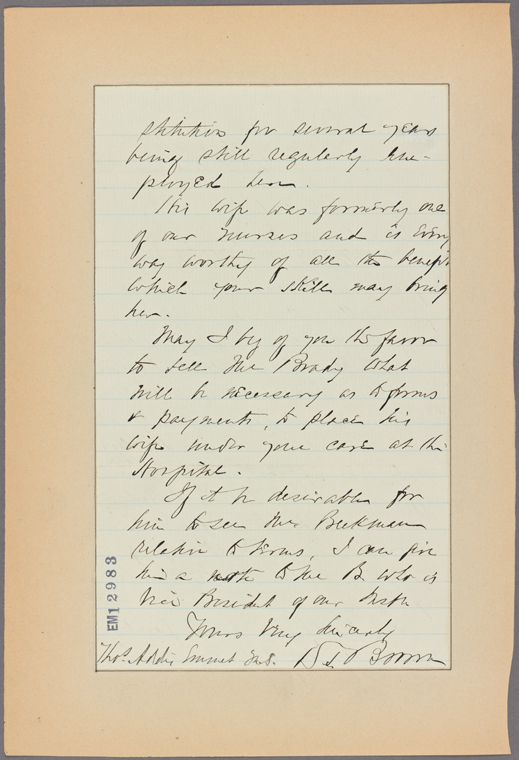 stitution for several years
being still regularly em-
ployed here.
His wife was formerly one
of our nurses and is every
way worthy of all the benefit
which your skill may bring
her.
May I beg of you the favor
to tell Mr Brady what
will be necessary as to forms
& payments, to place his
wife under your care at the
Hospital.
If it be desirable for
him to see Mr Beekman
relative to terms, I can give
him a note to Mr B. who is
Vice President of our Instn
Yours Very Sincerely
D. T. Brown
Thos. Addis Emmet M.D.
EM12983